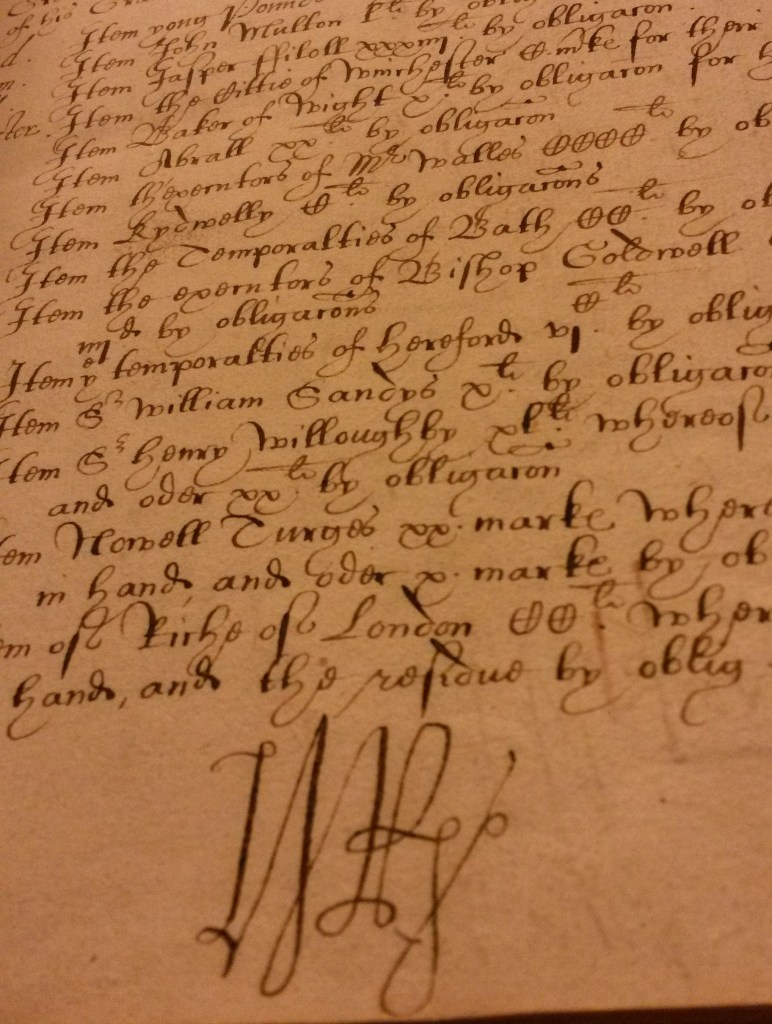 of his Gra
Item yong Pounde
d. Item John Multon xl li by oblig
m. Item Jasper ffiloll xxxiiij li by obligacon.
Item the Cittie of Winchester C. mke for their
tor. Item Baker of Wight x li by obligacon for h
Item Abrall xx li by obligacon
Item thexecutors of Mr Walles CCCC li by ob
Item Kydwelly C li by obligacons
Item the Temporalties of Bath CC li by ob
Item the executors of Bishop Goldwell
by obligacons
Item ye temporalties of hereford vj C li by oblig
Item Sr William Sandys x li by obligaco
Item Sr henry Willoughby xl li whereof
and oder xx li by obligacon
em Nowell Turges xx. marke Where
in hand, and oder x. marke by ob
em of Riche of London CC li Wher
hand, and the residue by oblig